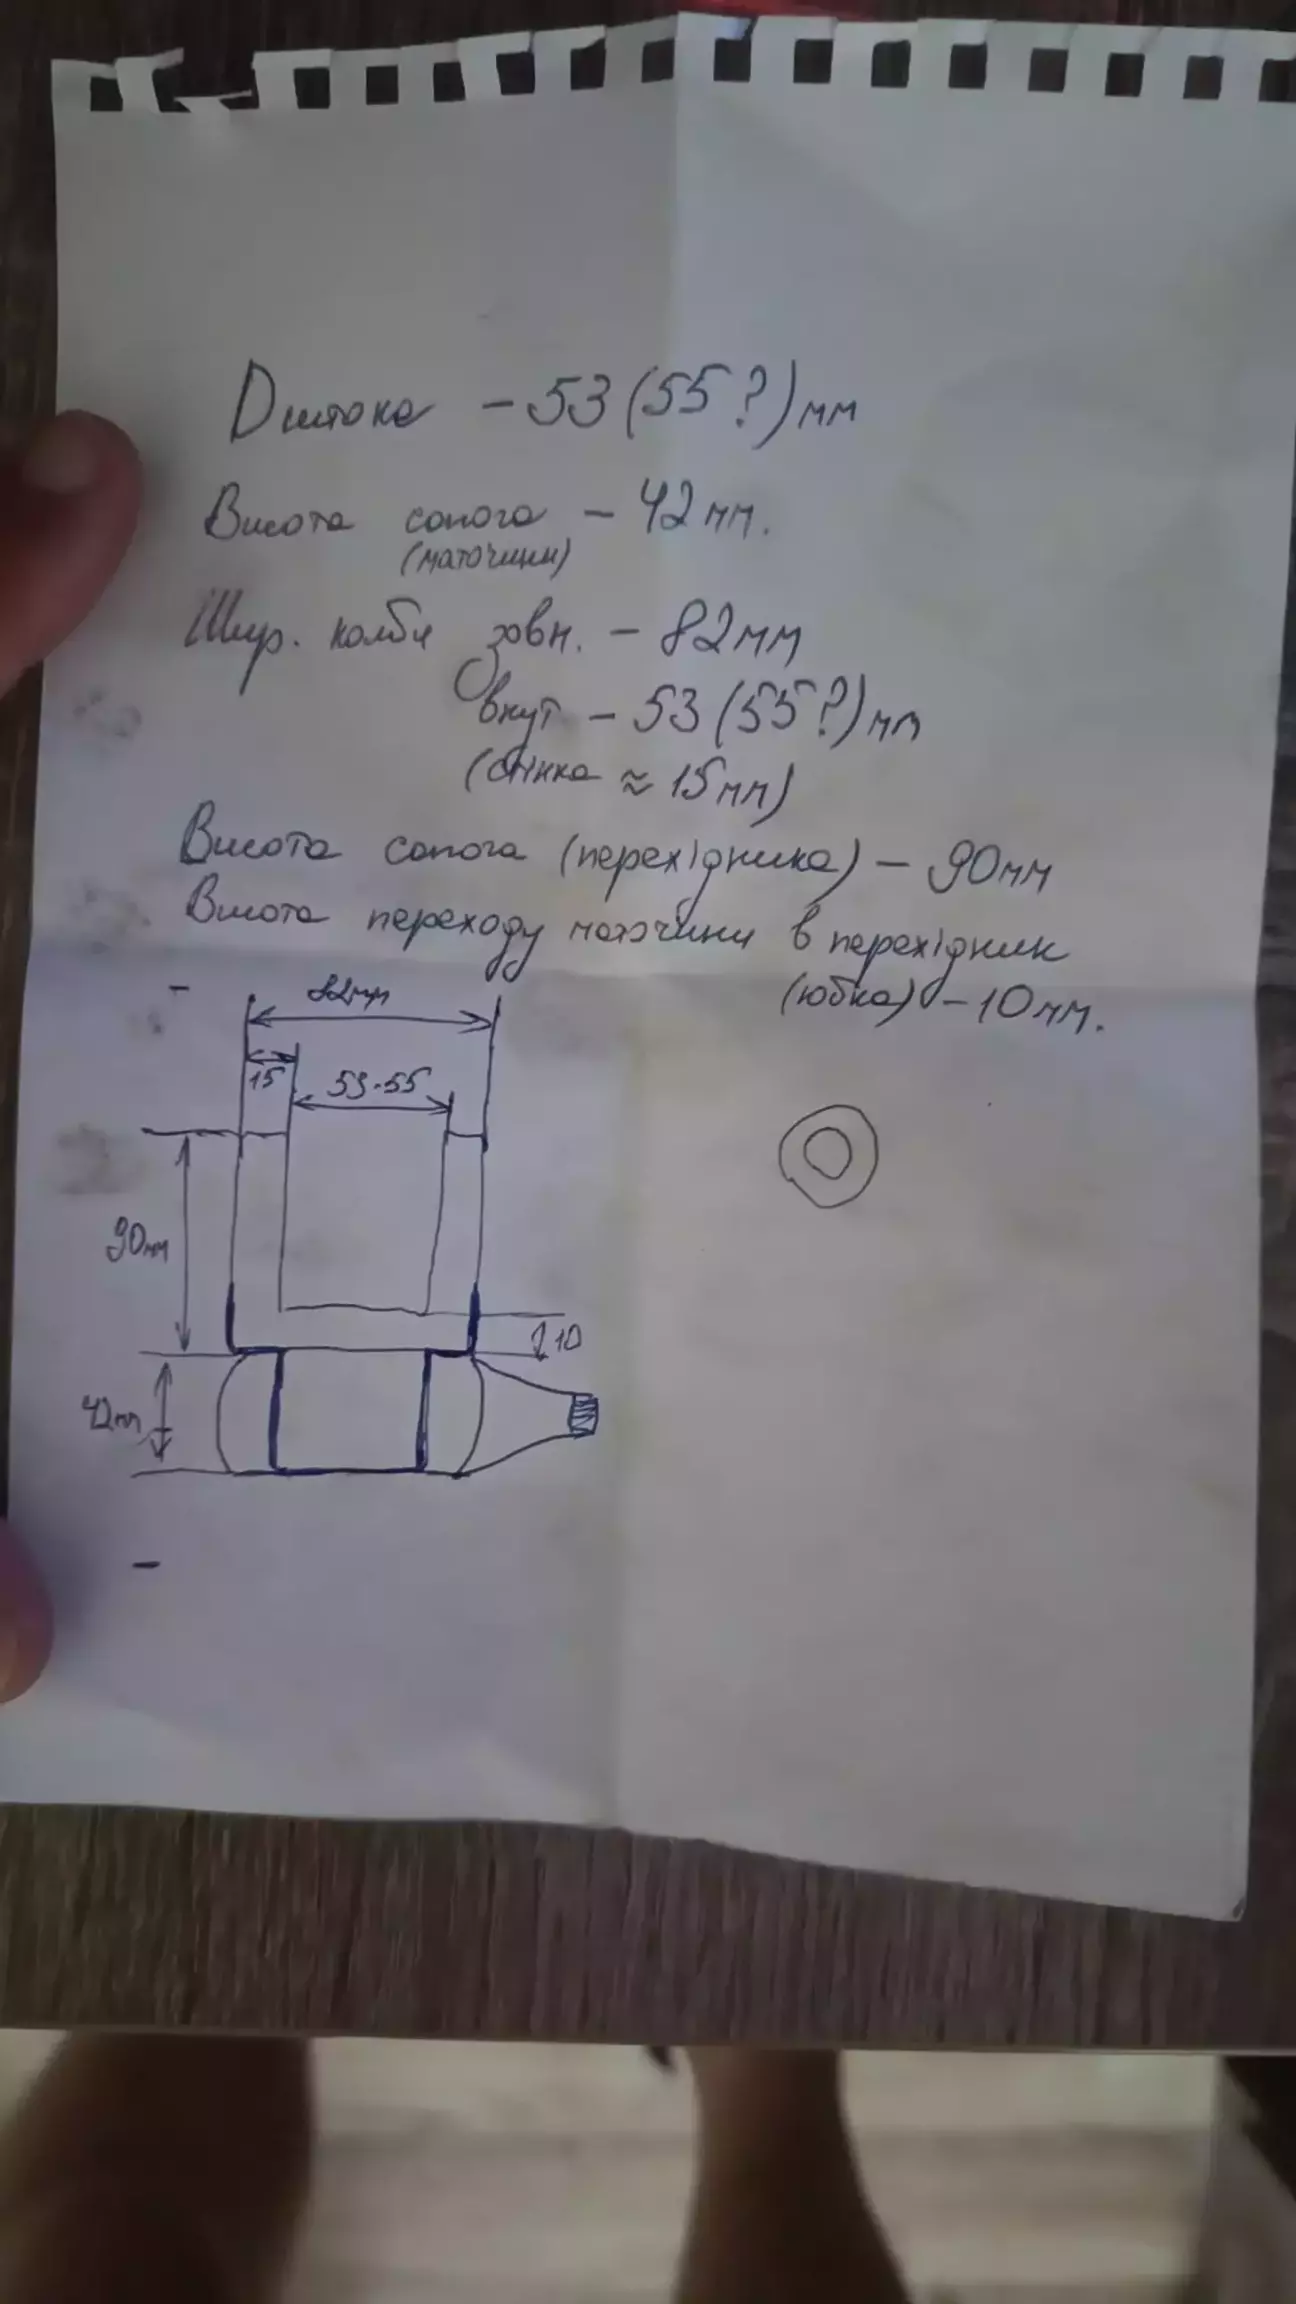 Dштока – 53 (55?) мм
Висота сапога – 42 мм.
(маточини)
Шир. колби зовн. – 82 мм
внут – 53 (55?) мм
(стінка ≈ 15 мм)
Висота сапога (перехідника) – 90 мм
Висота переходу маточини в перехідник
(юбка) – 10 мм.
82мм
15
53-55
90мм
10
42мм